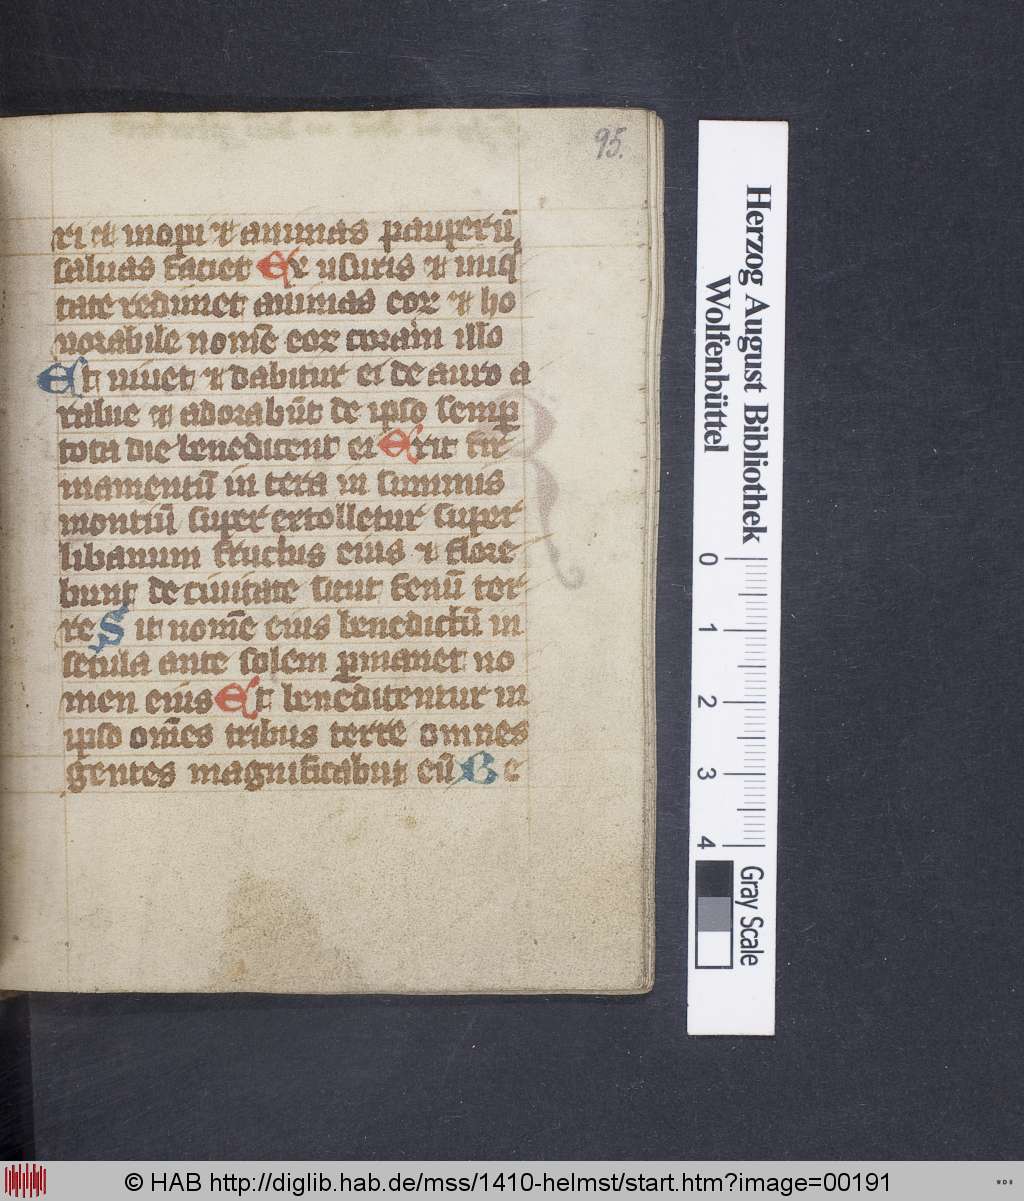 95.
ri et inopi et animas pauperū
saluas faciet Ex usuris et iniq̄
tate redimet animas eor et ho
norabile nomē eor coram illo
Et uiuet et dabitur ei de auro a
rabie et adorabūt de ipso semp̱
tota die benedicent ei Erit fir
mamentū in terra in summis
montiū super extolletur super
libanum fructus eius et flore
bunt de ciuitate sicut fenū ter
re Sit nomē eius benedictū in
secula ante solem p̱manet no
men eius Et benedicentur in
ipso om̄es tribus terre omnes
gentes magnificabunt eū Be
Herzog August Bibliothek
Wolfenbüttel
0
1
2
3
4
Gray Scale
© HAB http://diglib.hab.de/mss/1410-helmst/start.htm?image=00191